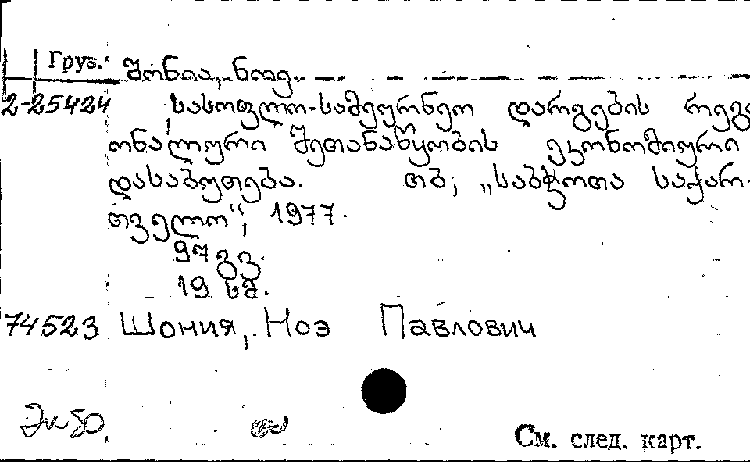 Груз. შონია, ნოე.
2-25424 სასოფლო-სამეურნეო დარგების რეგი
ონალური შეთანაწყობის ეკონომიური
დასაბუთება. თბ., „საბჭოთა საქარ-
თველო“, 1977.
97 გვ.
19 სმ.
74523 Шония, Ноэ Павлович
Эк50.
См. след. карт.